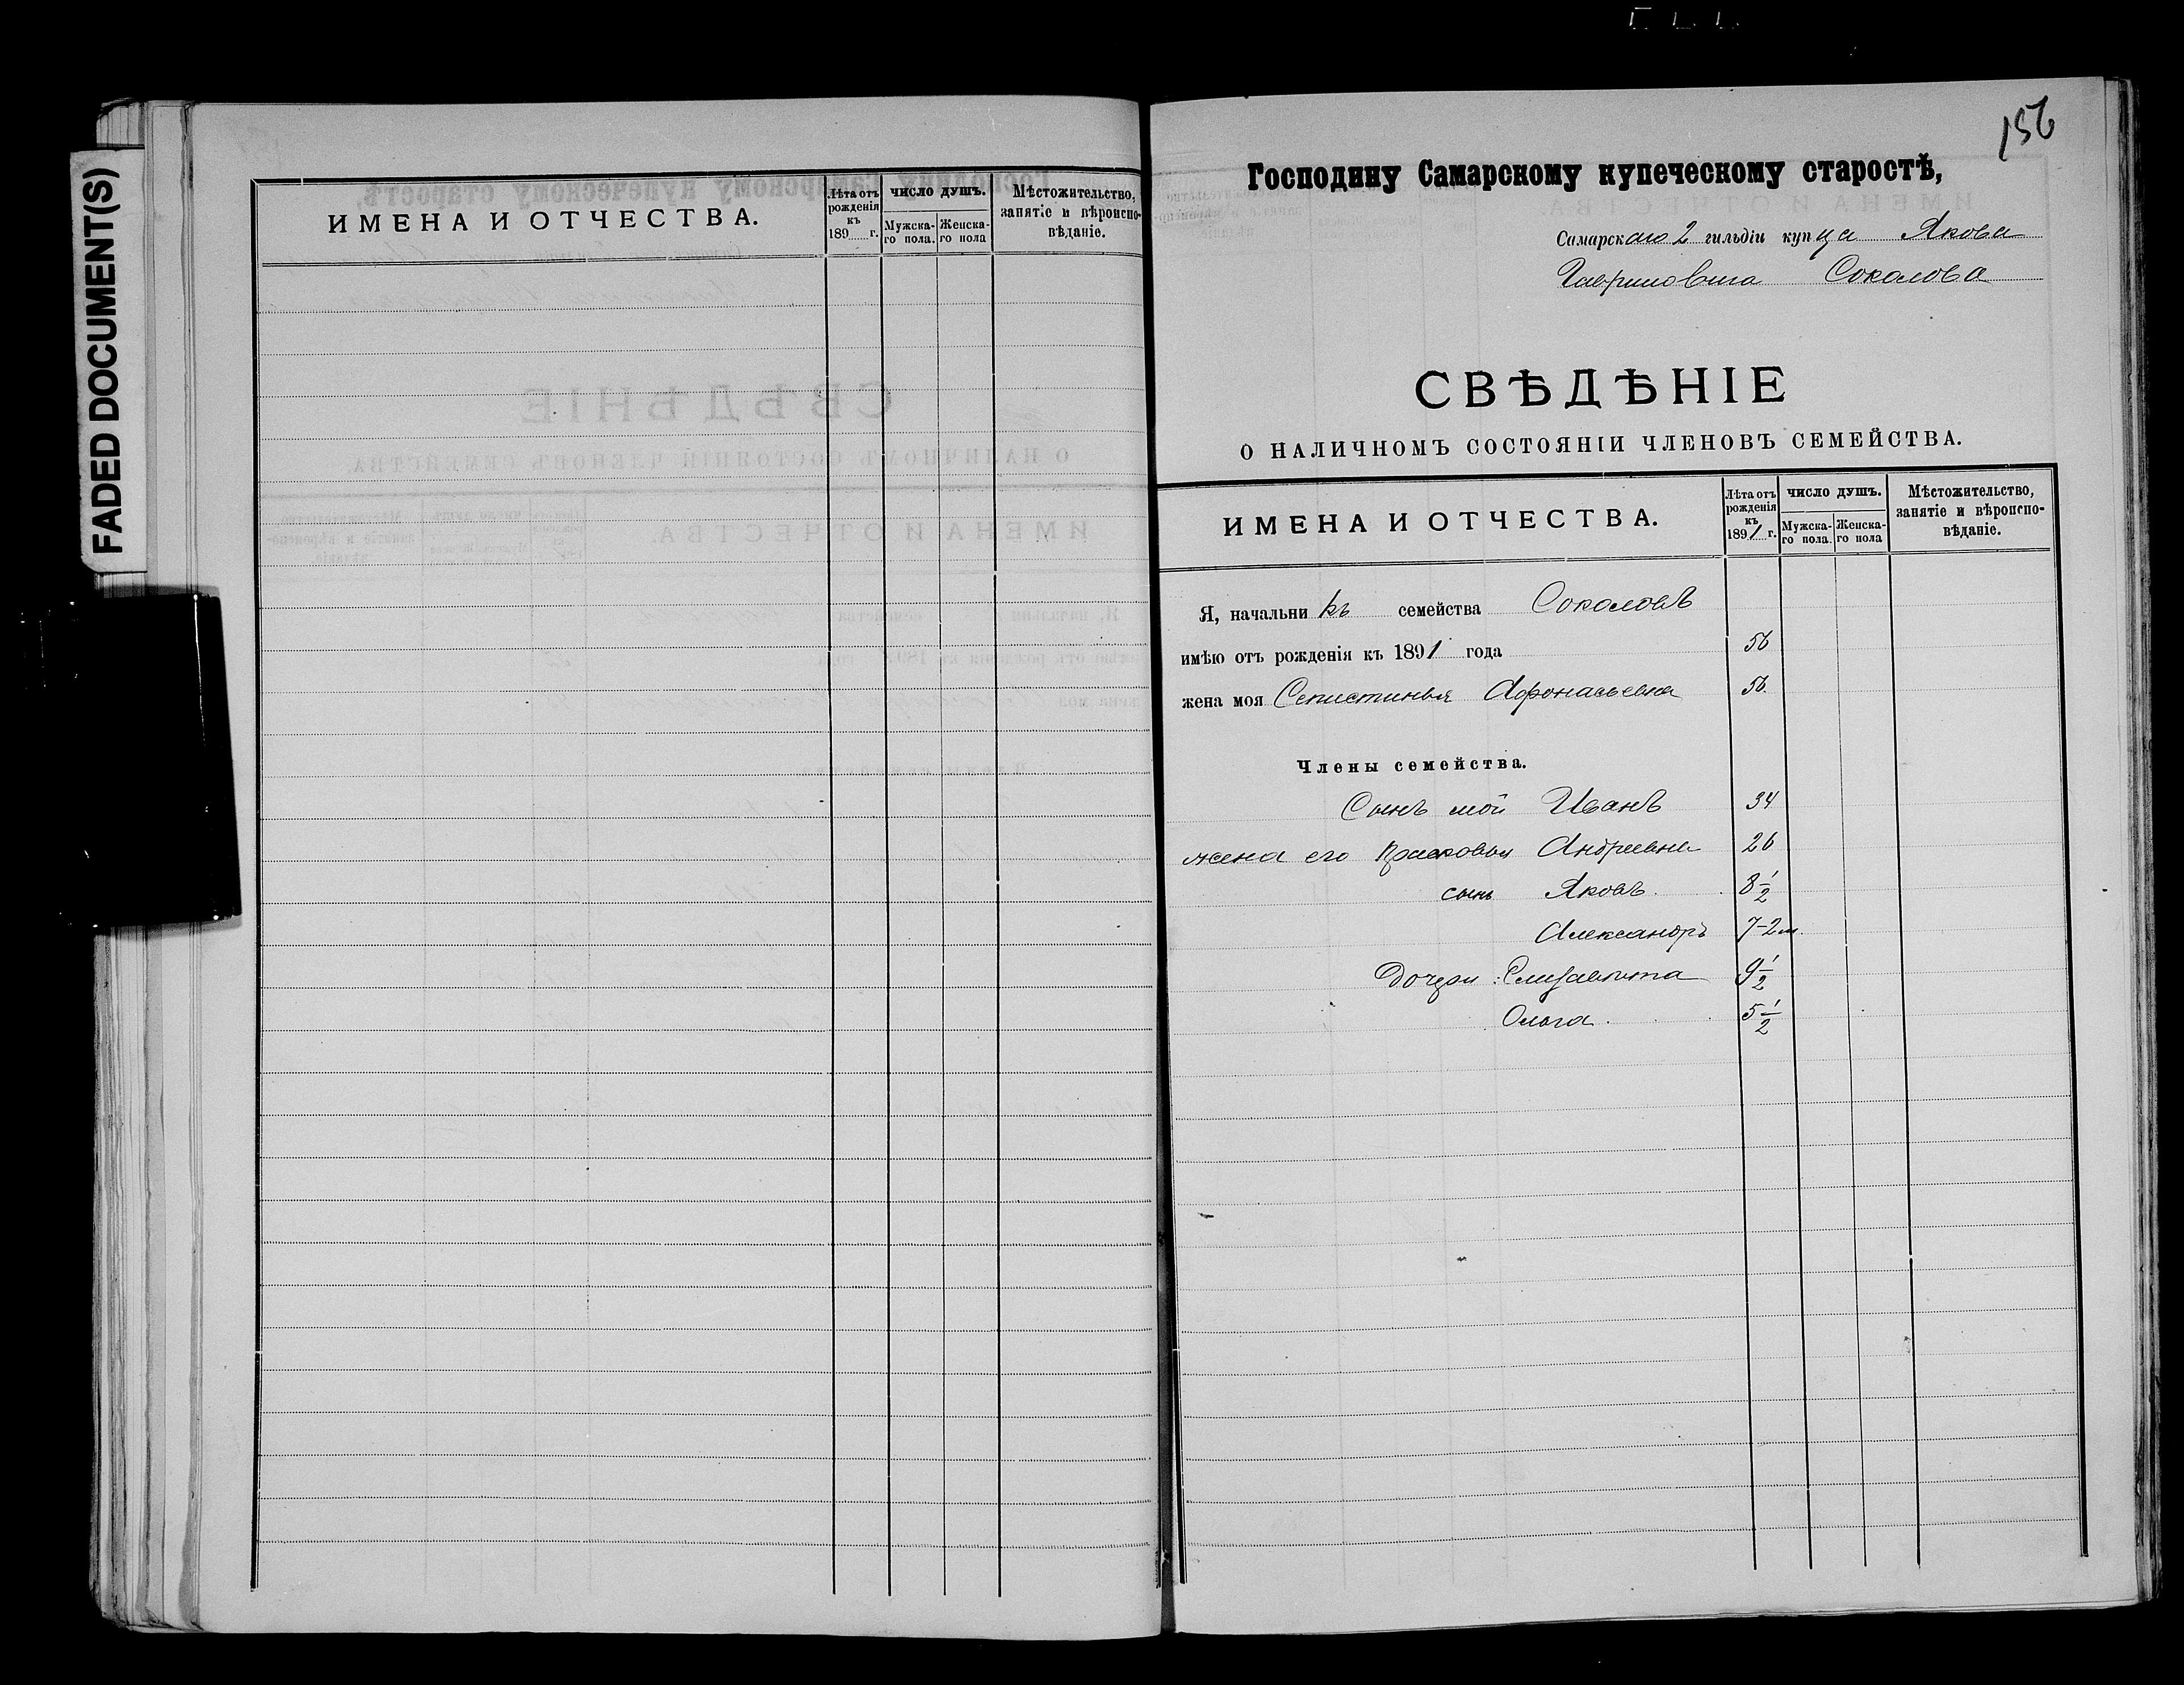 FADED DOCUMENT(S)
ИМЕНА И ОТЧЕСТВА.
Лѣта отъ рожденія къ 189 г.
ЧИСЛО ДУШЪ.
Мужска-го пола.
Женска-го пола
Мѣстожительство, занятіе и вѣроиспо-вѣданіе.
156
Господину Самарскому купеческому старостѣ,
Самарскаго 2 гильдіи купца Якова
Гавриловича Соколова
СВѢДѢНІЕ
О НАЛИЧНОМЪ СОСТОЯНІИ ЧЛЕНОВЪ СЕМЕЙСТВА.
ИМЕНА И ОТЧЕСТВА.
Лѣта отъ рожденія къ 1891 г.
ЧИСЛО ДУШЪ.
Мужска-го пола.
Женска-го пола
Мѣстожительство, занятіе и вѣроиспо-вѣданіе.
Я, начальникъ семейства Соколовъ
имѣю отъ рожденія къ 1891 года 56
жена моя Афонасьевна 56.
Члены семейства.
Сынъ мой Иванъ 34
жена его Прасковья Андреевна 26
сынъ Яковъ. 8 1/2
Александръ 7-2 м.
Дочери: Елизавѣта 9 1/2
Ольга. 5 1/2